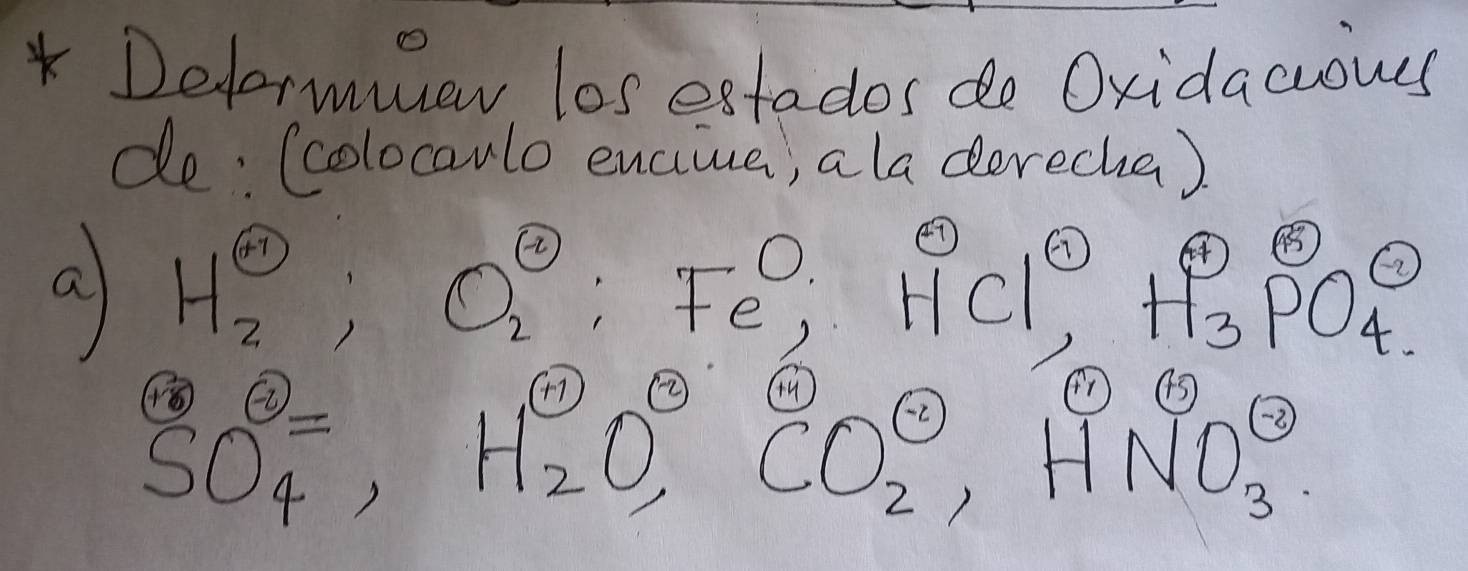 * Determinar los estados de Oxidaciones
de: (colocarlo encima, a la derecha).
a) H₂⁺¹; O₂⁻²; Fe⁰; H⁺¹Cl⁻¹, H₃⁺¹P⁺⁵O₄⁻².
S⁺⁶O₄⁻²⁼, H₂⁺¹O⁻², C⁺⁴O₂⁻², H⁺¹N⁺⁵O₃⁻².